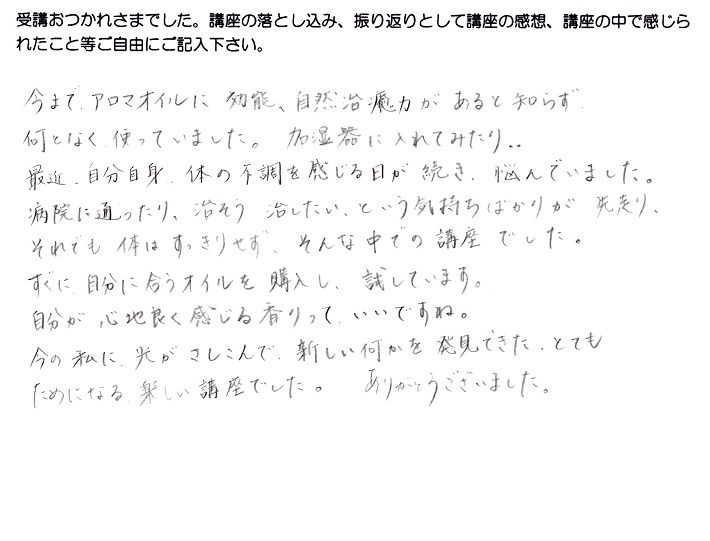 受講おつかれさまでした。講座の落とし込み、振り返りとして講座の感想、講座の中で感じら
れたこと等ご自由にご記入下さい。
今まで、アロマオイルに 効能、自然治癒力が あると知らず、
何となく使っていました。 加湿器に入れてみたり..
最近、自分自身、体の不調を感じる日が 続き、悩んでいました。
病院に通ったり、治そう 治したい、という気持ちばかりが 先走り、
それでも 体は すっきりせず、そんな中での 講座 でした。
すぐに、自分に合うオイルを 購入し、試しています。
自分が 心地良く感じる香りって、いいですね。
今の 私に、光が さしこんで、新しい何かを 発見できた、とても
ためになる、楽しい 講座でした。 ありがとうございました。